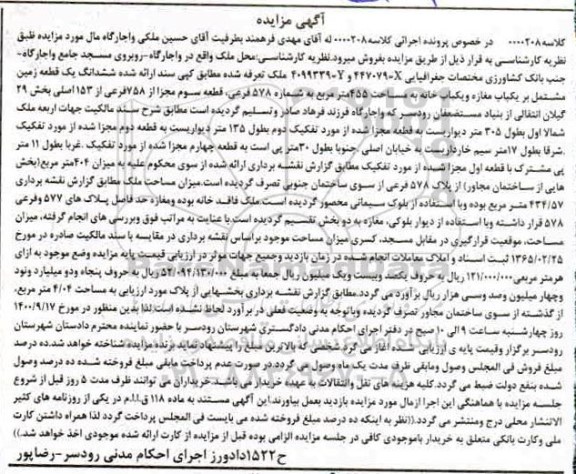 آگهی مزایده
کلاسه ۰۰۰۰۲۰۸ در خصوص پرونده اجرائی کلاسه ۰۰۰۰۲۰۸ له آقای مهدی فرهمند بطرفیت آقای حسین ملکی واجارگاه مال مورد مزایده طبق
نظریه کارشناسی به قرار ذیل از طریق مزایده بفروش میرود. نظریه کارشناسی: محل ملک واقع در واجارگاه-روبروی مسجد جامع واجارگاه-
جنب بانک کشاورزی مختصات جغرافیایی X-۴۴۷۰۷۹۰ و Y-۴۰۹۹۳۳۹ ملک تعرفه شده مطابق کپی سند ارائه شده ششدانگ یک قطعه زمین
مشتمل بر یکباب مغازه ویکباب خانه به مساحت ۴۵۵متر مربع به شماره ۵۷۸ فرعی، قطعه سوم مجزا از ۷۵۸فرعی از ۱۵۳ اصلی بخش ۲۹
گیلان انتقالی از بنیاد مستضعفان رودسر که واجارگاه فرزند فرهاد صادر وتسلیم گردیده است مطابق شرح سند مالکیت جهات اربعه ملک
شمالا اول بطول ۳۰۵ متر دیواریست به قطعه مجزا شده از مورد تفکیک دوم بطول ۱۳۵ متر دیواریست به قطعه دوم مجزا شده از مورد تفکیک
.شرقا بطول ۱۷متر سیم خارداریست به خیابان اصلی .جنوبا بطول ۳۰متر پی است به قطعه چهارم مجزا شده از مورد تفکیک .غربا بطول ۱۱ متر
پی مشترک با قطعه اول مجزا شده از مورد تفکیک مطابق گزارش نقشه برداری ارائه شده از سوی محکوم علیه به میزان ۴۰۴متر مربع(بخش
هایی از ساختمان مجاور) از پلاک ۵۷۸ فرعی از سوی ساختمان جنوبی تصرف گردیده است.میزان مساحت ملک مطابق گزارش نقشه برداری
۴۳۴/۵۷ متر مربع بوده وبا استفاده از بلوک سیمانی محصور گردیده است.ملک فاقد خانه بوده ومغازه حد فاصل پلاک های ۵۷۷ وفرعی
۵۷۸ قرار داشته وبا استفاده از دیوار بلوکی، مغازه به دو بخش تقسیم گردیده است.با عنایت به مراتب فوق وبررسی های انجام گرفته، میزان
مساحت، موقعیت قرارگیری در مقابل مسجد، کسری میزان مساحت موجود براساس نقشه برداری در مقایسه با سند مالکیت صادره در مورخ
۱۳۶۵/۰۲/۲۵ ثبت اسناد و املاک معاملات انجام شده در زمان بازدید وجمیع جهات موثر در ارزیابی قیمت پایه مزایده وضع موجود به ازای
هرمتر مربعی ۱۲۱/۰۰۰/۰۰۰ ریال به حروف یکصد وبیست ویک میلیون ریال جمعا به مبلغ ۵۲/۰۹۴/۱۳۰/۰۰۰ ریال به حروف پنجاه ودو میلیارد ونود
وچهار میلیون وصد وسی هزار ریال برآورد می گردد.مطابق گزارش نقشه برداری بخشهایی از پلاک مورد ارزیابی به مساحت ۴/۰۴ متر مربع،
از گذشته از سوی ساختمان مجاور تصرف گردیده وباتوجه به وضعیت فعلی در برآورد لحاظ نشده است.لذا بدین منظور در مورخ ۱۴۰۰/۹/۱۷
روز چهارشنبه ساعت ۹ الی ۱۰ صبح در دفتر اجرای احکام مدنی دادگستری شهرستان رودسر با حضور نماینده محترم دادستان شهرستان
رودسر برگزار وقیمت پایه ی ارزیابی شده آغاز می گردد شخصی که بالاترین مبلغ را پیشنهاد نماید برنده مزایده شناخته خواهد شد.ده درصد
مبلغ فروش فی المجلس وصول ومابقی ظرف مدت یک ماه وصول می گردد.در صورت عدم پرداخت مابقی مبلغ فروخته شده ده درصد وصول
شده بنفع دولت ضبط می گردد.کلیه هزینه های نقل وانتقالات به عهده خریدار می باشد.خریداران می توانند ظرف مدت ۵ روز قبل از شروع
جلسه مزایده با هماهنگی این اجرا ازمال مورد مزایده بازدید بعمل بیاورند.این آگهی مستند به ماده ۱۱۸ ق.ا.ا.م در یکی از روزنامه های کثیر
الانتشار محلی درج ومنتشر می گردد.((نظر به اینکه ده درصد مبلغ فروخته شده می بایست فی المجلس پرداخت گردد لذا همراه داشتن کارت
ملی وکارت بانکی متعلق به خریدار باموجودی کافی در جلسه مزایده الزامی بوده قبل از مزایده از کارت ارائه شده موجودی اخذ خواهد شد.))
ح۱۵۲۲دادورز اجرای احکام مدنی رودسر-رضاپور